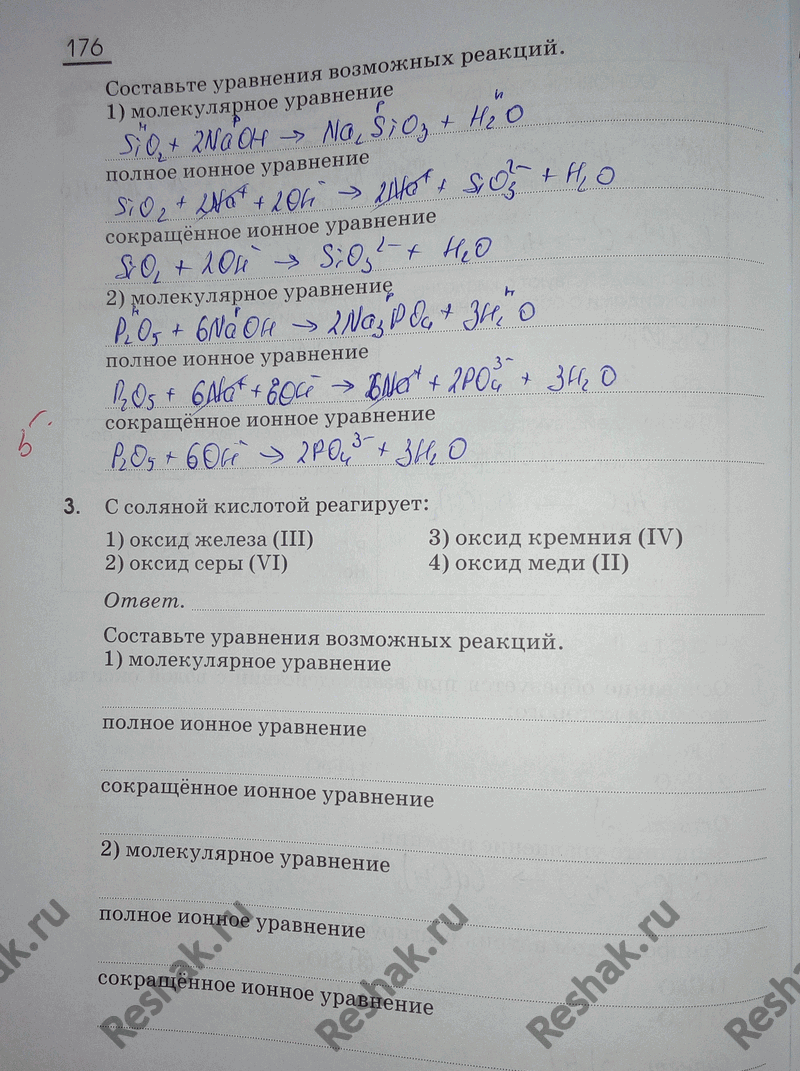 176
Составьте уравнения возможных реакций.
1) молекулярное уравнение
н р р н
SiO₂ + 2NaOH → Na₂SiO₃ + H₂O
полное ионное уравнение
SiO₂ + 2Na⁺ + 2OH⁻ → 2Na⁺ + SiO₃²⁻ + H₂O
сокращённое ионное уравнение
SiO₂ + 2OH⁻ → SiO₃²⁻ + H₂O
2) молекулярное уравнение
н р р н
P₂O₅ + 6NaOH → 2Na₃PO₄ + 3H₂O
полное ионное уравнение
P₂O₅ + 6Na⁺ + 6OH⁻ → 6Na⁺ + 2PO₄³⁻ + 3H₂O
сокращённое ионное уравнение
P₂O₅ + 6OH⁻ → 2PO₄³⁻ + 3H₂O
3. С соляной кислотой реагирует:
1) оксид железа (III) 3) оксид кремния (IV)
2) оксид серы (VI) 4) оксид меди (II)
Ответ.
Составьте уравнения возможных реакций.
1) молекулярное уравнение
полное ионное уравнение
сокращённое ионное уравнение
2) молекулярное уравнение
полное ионное уравнение
сокращённое ионное уравнение
Reshak.ru Reshak.ru Reshak.ru